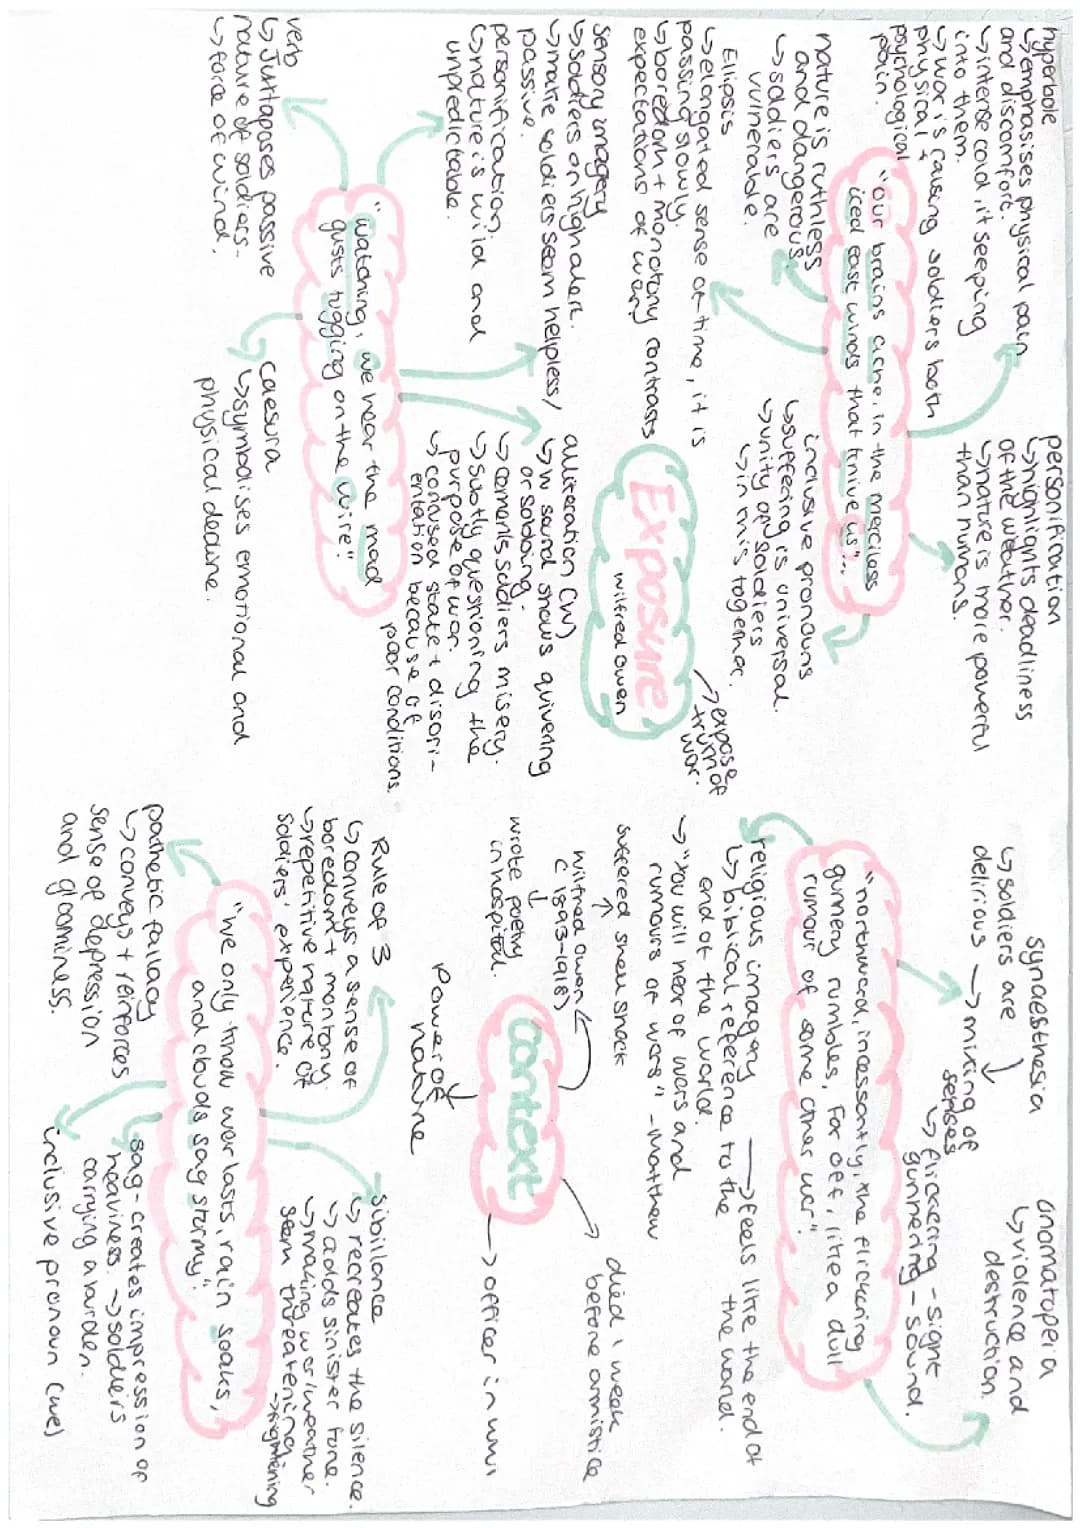 hyperbole
↳emphasises physical pain
and discomfort.
↳intense cold, it seeping
into them.
↳war is causing soldiers both
physical +
psychological
pain.
personification
↳highlights deadliness
of the weather.
↳nature is more powerful
than humans.
"our brains ache, in the merciless
iced east winds that knive us"...
nature is ruthless
and dangerous
↳soldiers are
vulnerable.
inclusive pronouns
↳suffering is universal.
↳unity of soldiers
↳in this together.
Ellipsis
↳elongated sense of time, it is
passing slowly.
↳boredom + monotony contrasts
expectations of war
Exposure
wilfred owen
→expose
truth of
war.
sensory imagery
↳soldiers on high alert.
↳make soldiers seem helpless/
passive.
personification.
↳nature is wild and
unpredictable.
alliteration (w)
↳w sound shows quivering
or sobbing.
↳cements soldiers misery.
↳subtly questioning the
purpose of war.
↳confused state + disori-
entation because of
poor conditions.
"watching, we hear the mad
gusts tugging on the wire"
verb
↳Juxtaposes passive
nature of soldiers-
↳force of wind.
caesura
↳symbolises emotional and
physical decline.
synaesthesia
↳soldiers are
delirious → mixing of
senses
↳flickering - sight
gunnering - sound.
onomatoperia
↳violence and
destruction.
"northward, incessantly, the flickering
gunnery rumbles, Far off, like a dull
rumour of some other war".
religious imagary → feels like the end of
the world.
↳biblical reference to the
end of the world.
→"You will hear of wars and
rumours of wars" - Matthew
suffered shell shock
wilfred owen
(1893-1918)
wrote poetry
in hospital.
context
died 1 week
before armistice
→officer in WW1
Power of
nature
Rule of 3
↳conveys a sense of
boredom + montony.
↳repetitive nature of
soldiers' experience.
sibilance
↳recreates the silence.
↳adds sinister tone.
↳making war/weather
seem threatening
→frightening
"we only know war lasts, rain soaks,
and clouds sag stormy."
pathetic fallacy
↳conveys + reinforces
sense of depression
and gloominess.
sag - creates impression of
heaviness. → soldiers
carrying a burden.
inclusive pronoun (we)